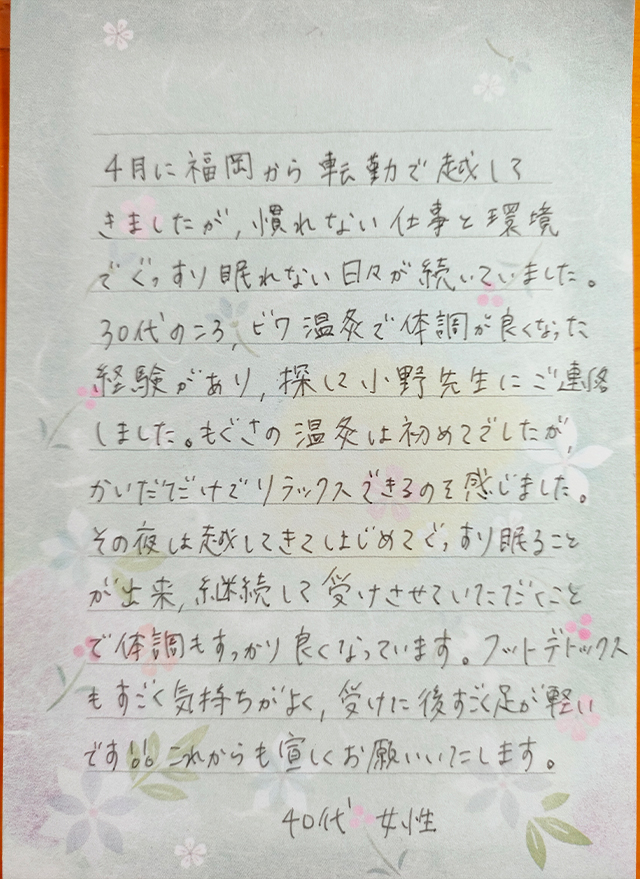 4月に福岡から転勤で越して
きましたが,慣れない仕事と環境
でぐっすり眠れない日々が続いていました。
30代のころ,ビワ温灸で体調が良くなった
経験があり,探して小野先生にご連絡
しました。もぐさの温灸は初めてでしたが,
かいだだけでリラックスできるのを感じました。
その夜は越してきてはじめてぐっすり眠ること
が出来,継続して受けさせていただくこと
で体調もすっかり良くなっています。フットデトックス
もすごく気持ちがよく,受けた後すごく足が軽い
です!!これからも宜しくお願いいたします。
40代 女性